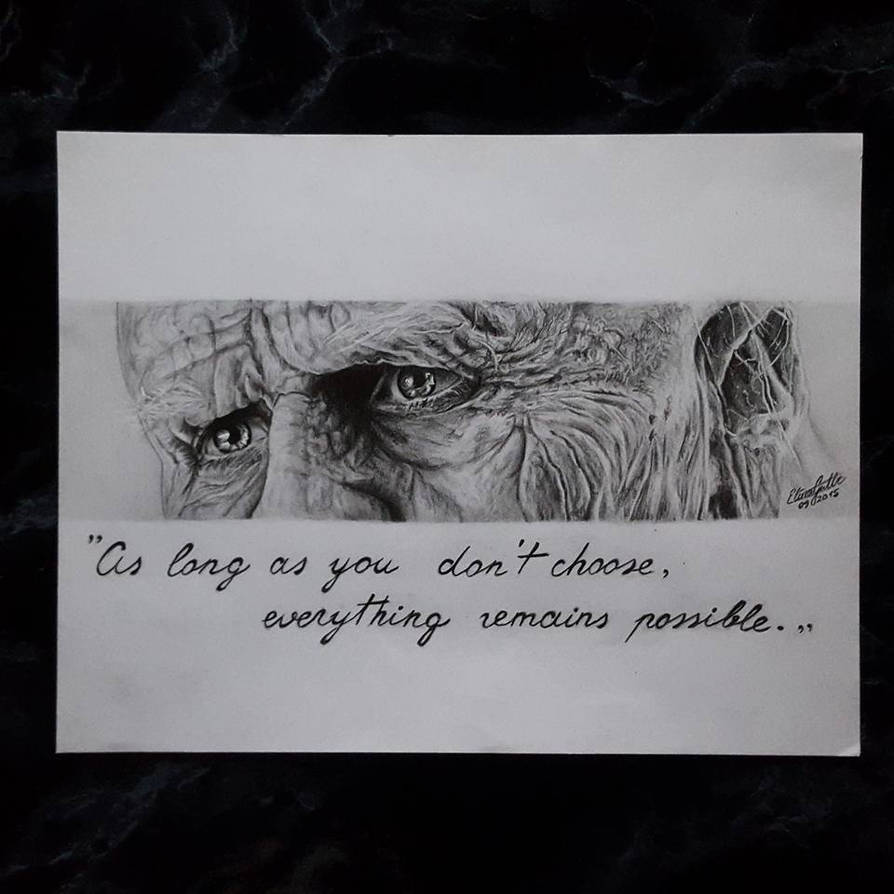 09 2015
"As long as you don't choose,
everything remains possible.„